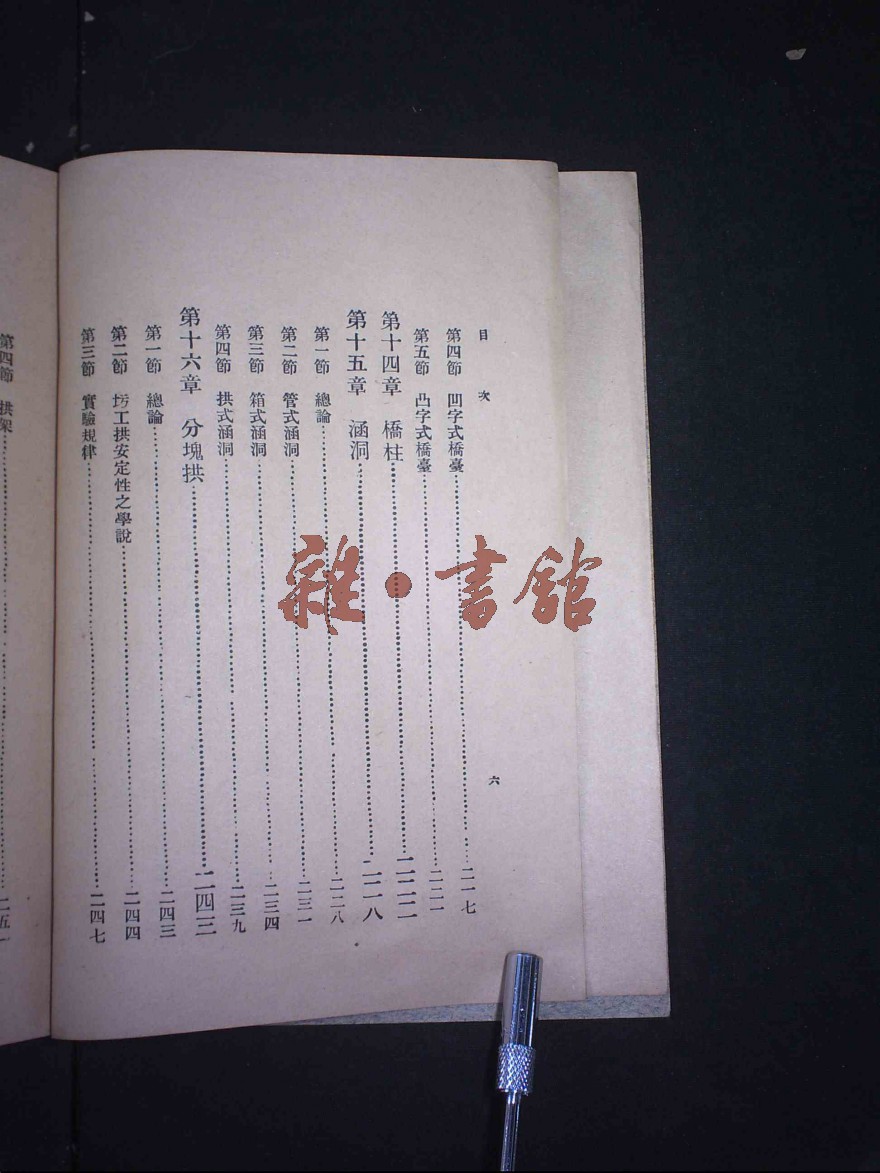 目次
六
第四節 凹字式橋臺 二一七
第五節 凸字式橋臺 二二一
第十四章 橋柱 二二二
第十五章 涵洞 二二八
第一節 總論 二二八
第二節 管式涵洞 二三一
第三節 箱式涵洞 二三四
第四節 拱式涵洞 二三九
第十六章 分塊拱 二四三
第一節 總論 二四三
第二節 圬工拱安定性之學說 二四四
第三節 實驗規律 二四七
第四節 拱架
雜·書館